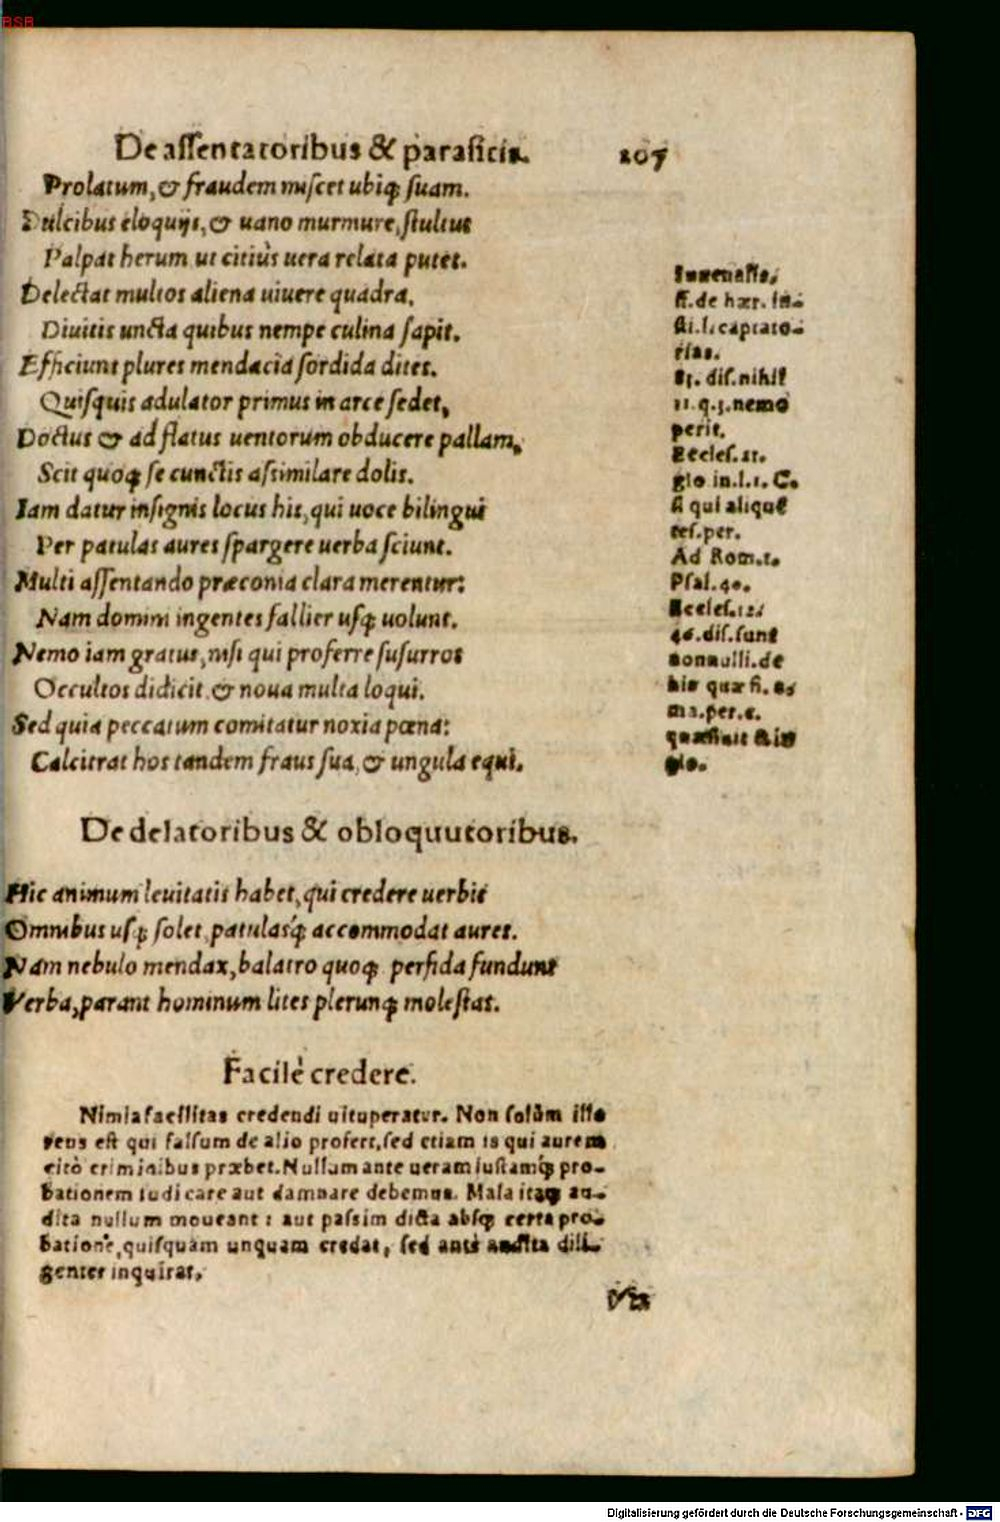 BSB
De assentatoribus & parasitis. 207
Prolatum, & fraudem miscet ubiq; suam.
Dulcibus eloquijs, & uano murmure, stultus
Palpat herum ut citiùs uera relata putet.
Delectat multos aliena uiuere quadra,
Diuitis uncta quibus nempe culina sapit.
Efficiunt plures mendacia sordida dites.
Quisquis adulator primus in arce sedet,
Doctus & ad flatus uentorum obducere pallam,
Scit quoq; se cunctis assimilare dolis.
Iam datur insignis locus his, qui uoce bilingui
Per patulas aures spargere uerba sciunt.
Multi assentando præconia clara merentur:
Nam domini ingentes fallier usq; uolunt.
Nemo iam gratus, nisi qui proferre susurros
Occultos didicit, & noua multa loqui.
Sed quia peccatum comitatur noxia pœna:
Calcitrat hos tandem fraus sua, & ungula equi.
Iuuenalis.
ff. de hær. in-
sti. l. captato-
rias.
81. dis. nihil
11. q. 3. nemo
perit.
Eccles. 21.
glo in. l. 1. C.
si qui aliquē
tes. per.
Ad Rom. 1.
Psal. 40.
Eccles. 12.
46. dis. sunt
nonnulli. de
his quæ fi. as
ma. per. c.
quæsiuit & in
glo.
De delatoribus & obloquutoribus.
Hic animum leuitatis habet, qui credere uerbis
Omnibus usq; solet, patulasq́; accommodat aures.
Nam nebulo mendax, balatro quoq; perfida fundunt
Verba, parant hominum lites plerunq; molestas.
Facilè credere.
Nimia facilitas credendi uituperatur. Non solùm ille
reus est qui falsum de alio profert, sed etiam is qui aurem
citò criminibus præbet. Nullum ante ueram iustamq́; pro-
bationem iudicare aut damnare debemus. Mala itaq; au-
dita nullum moueant: aut passim dicta absq; certa pro-
batione, quisquam unquam credat, sed antè audita dili-
genter inquirat,
Vis
Digitalisierung gefördert durch die Deutsche Forschungsgemeinschaft - DFG